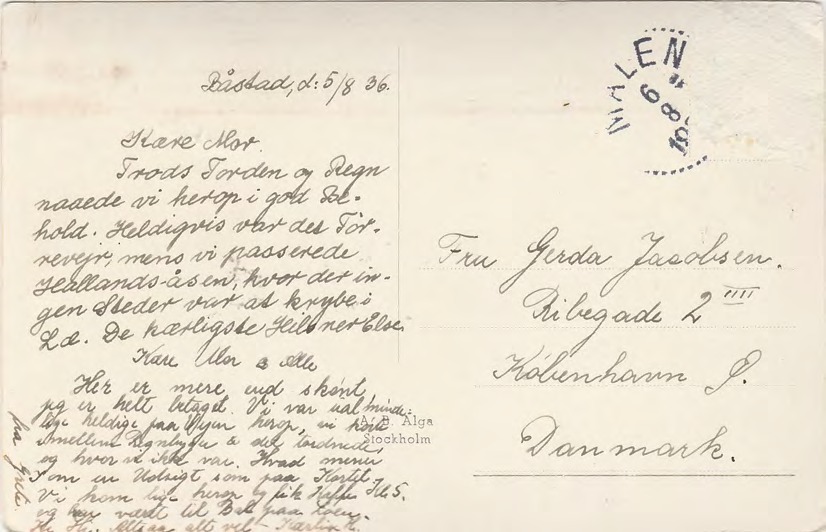 Båstad, d: 5/8 36.
Kære Mor.
Trods Torden og Regn
naaede vi herop i god Be-
hold. Heldigvis var det Tör-
revejr, mens vi passerede
Hallands-åsen, hvor der in-
gen Steder var at krybe i
Læ. De kærligste Hilsner Else.
Kære Mor & Alle
Her er mere end skönt,
jeg er helt betaget. Vi var ualminde-
lige heldige paa Vejen herop, vi
imellem Regnbyger & det tordnede,
og hvor vi ikke var. Hvad mener
I om en Udsigt som paa Kortet.
Vi kom lige herop og fik Kaffe Kl. 5.
og har været til Bal paa
Altsaa alt vel.
fra Grete.
MALEN
6 8
A. B. Alga
Stockholm
Fru Gerda Jacobsen.
Ribegade 2 IIII
København Ø.
Danmark.